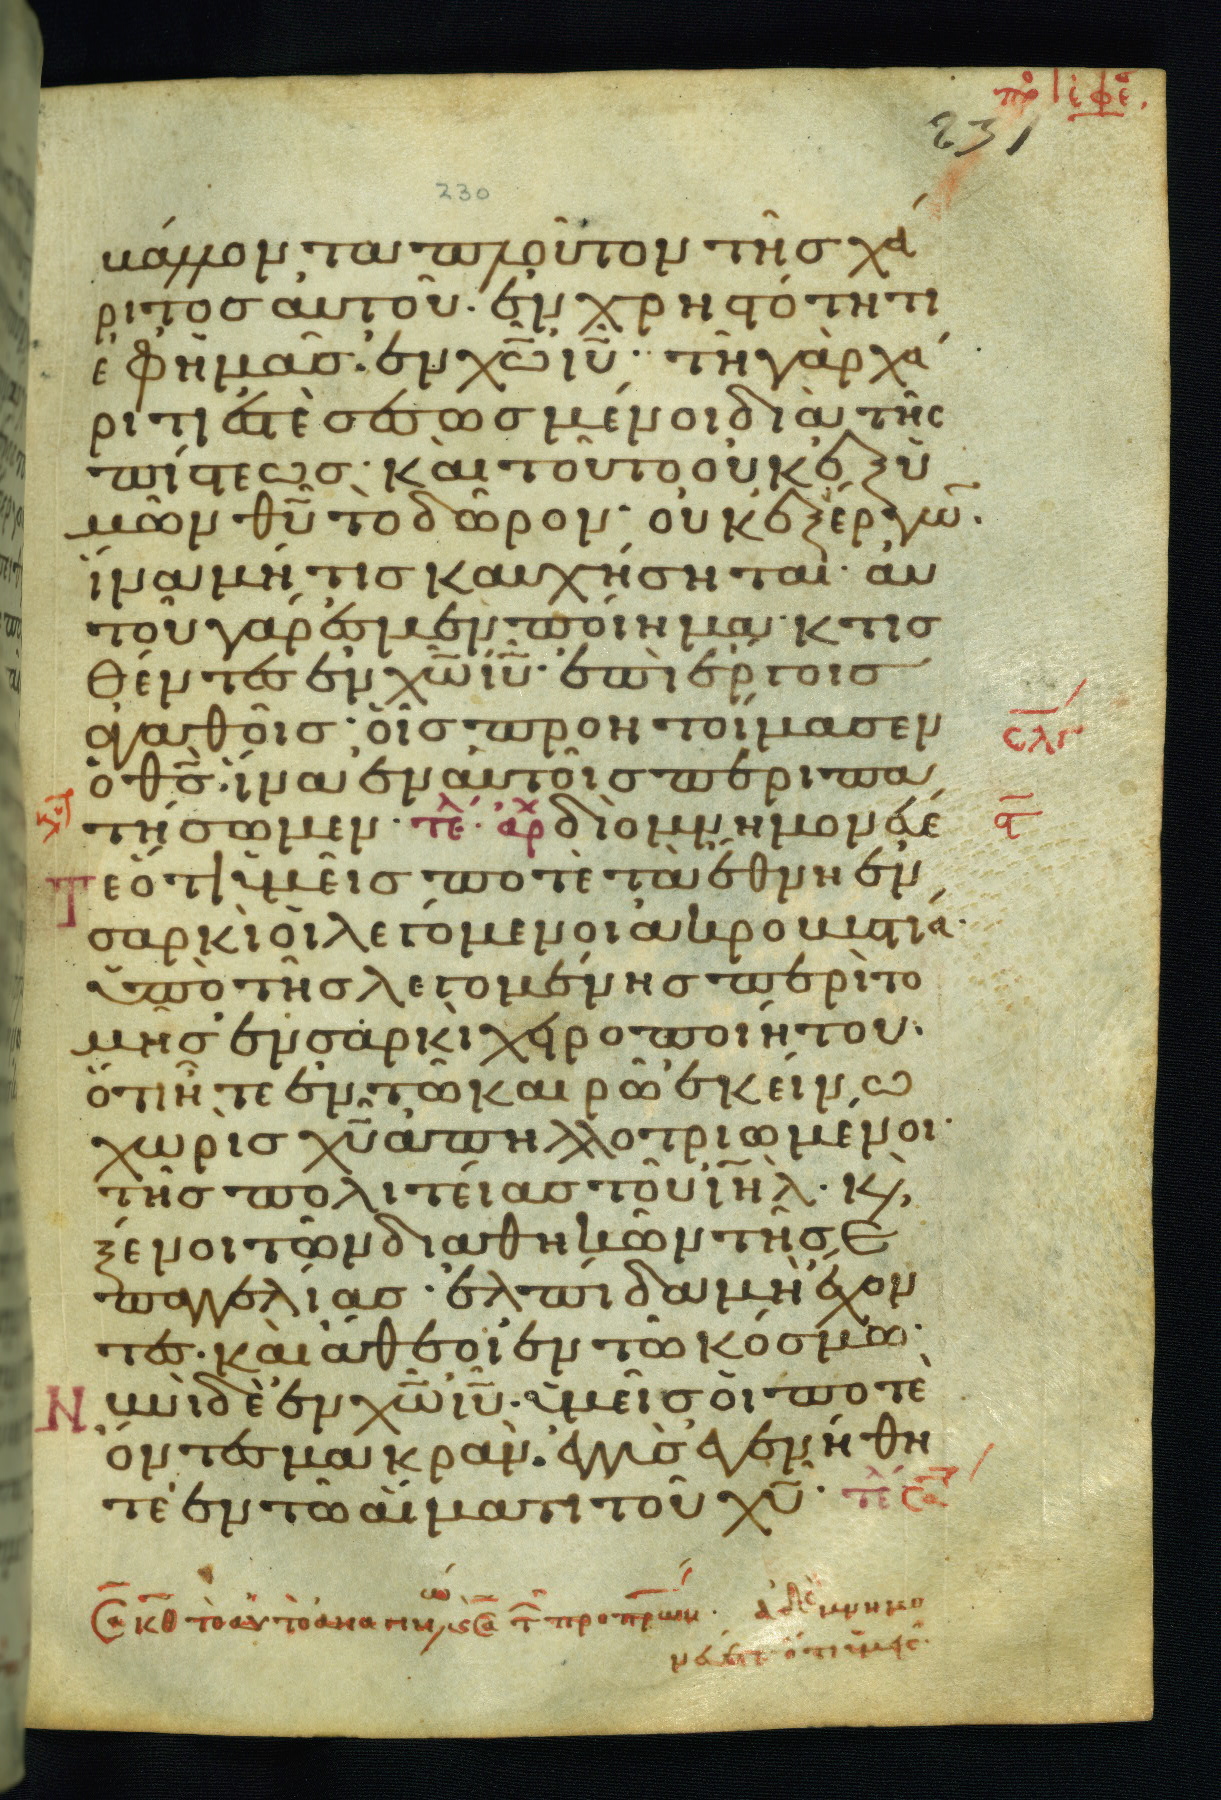 πρὸ ἐφε.
231
230
βάλλον τα πλοῦτον τῆς χά
ριτος αὐτοῦ. ἐν χρηστότητι
ἐφ ἡμᾶς. ἐν χῶ ἰῦ. τῆ γὰρ χά
ριτι ἐστὲ σεσωσμένοι διὰ τῆς
πίστεως. και τοῦτο οὐκ ἐξ ὑ
μῶν θῦ τὸ δῶρον. οὐκ ἐξ ἔργω.
ἵνα μή τις καυχήσηται. αὐ
τοῦ γάρ ἐσμεν ποίημα. κτισ
θέντες ἐν χῶ ἰῦ. ἐπὶ ἔργοις
ἀγαθοῖς. οἷς προητοίμασεν
ὁ θς. ἵνα ἐν αὐτοῖς περιπα
τήσωμεν. τέλ. ἀρχ διο μνημονεύε
Τε ὅτι ὑμεῖς ποτὲ τὰ ἔθνη ἐν
σαρκὶ οἱ λεγόμενοι ἀκροβυστία.
ὑπὸ τῆς λεγομένης περὶτο
μῆς ἐν σαρκὶ χειροποιήτου.
ὅτι ἦτε ἐν τῶ καιρῶ ἐκείνω
χωρὶς χῦ ἀπηλλοτριωμένοι.
τῆς πολιτείας τοῦ ἰηλ. κ,
ξένοι τῶν διαθηκῶν τῆς ε
παγγελίας. ἐλπίδα μὴ ἔχον
τες. καὶ ἄθεοι ἐν τῶ κόσμω.
Νυνὶ δὲ ἐν χῶ ἰῦ. ὑμεῖς οἱ ποτὲ
ὄντες μακρὰν. ἐγγὺς ἐγενήθη
τε ἐν τῶ αἵματι τοῦ χῦ. τέλ
ϛλγ
κθ τὸ αὐτὸ
μνημο
ὅτι ὑμεῖς.